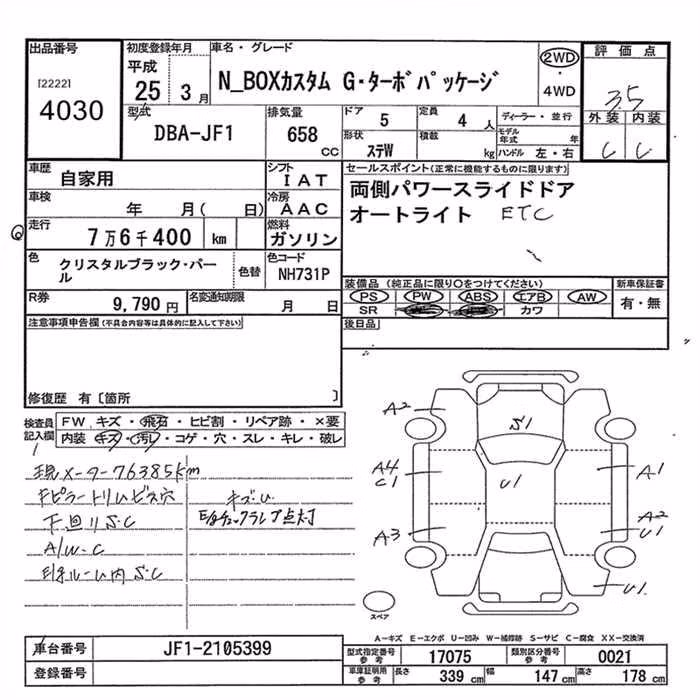 出品番号
[2222]
4030
初度登録年月
平成
25 3月
車名・グレード
N_BOXカスタム G・ターボパッケージ
2WD
・
4WD
評価点
3.5
外装 内装
C C
型式
DBA-JF1
排気量
658
cc
ドア
5
定員
4人
ディーラー・並行
形状
ステW
積載
kg
モデル年式 年
ハンドル 左・右
車歴
自家用
シフト
IAT
車検
年 月( 日)
冷房
AAC
走行
7万6千400 km
燃料
ガソリン
色
クリスタルブラック・パール
色替
色コード
NH731P
R券
9,790円
名変通知期限
月 日
セールスポイント(正常に機能するものに限ります)
両側パワースライドドア
オートライト ETC
装備品(純正品に限り○をつけてください)
PS PW ABS エアB AW
SR カワ
新車保証書
有・無
後日品
注意事項申告欄(不具合内容等は具体的に記入して下さい)
修復歴 有〔箇所 〕
検査員記入欄
FW キズ・飛石・ヒビ割・リペア跡・×要
内装 キズ・汚レ・コゲ・穴・スレ・キレ・破レ
現メーター76385km
Fピラートリムビス穴
下回りS.C
A/W-C
キズU
点灯
S.C
A2
S1
A4
C1
U1
A1
A3
A2
U1
U1
スペア
A-キズ E-エクボ U-凹み W-補修跡 S-サビ C-腐食 XX-交換済
車台番号
JF1-2105399
登録番号
型式指定番号
参考
17075
類別区分番号
参考
0021
車庫証明用
参考
長さ 339 cm
幅 147 cm
高さ 178 cm